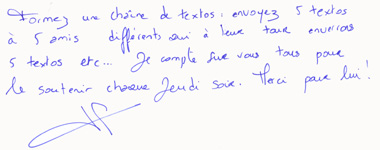 Formez une chaîne de textos : envoyez 5 textos
à 5 amis différents qui à leur tour enverrons
5 textos etc... Je compte sur vous tous pour
le soutenir chaque Jeudi soir. Merci pour lui !